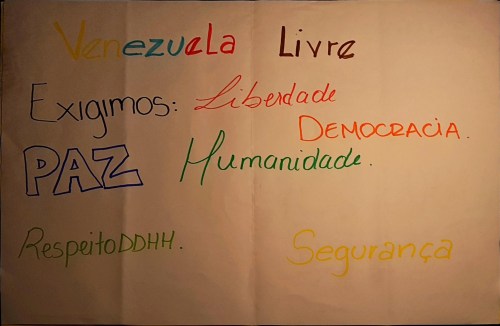 Venezuela Livre
Exigimos: Liberdade
DEMOCRACIA.
PAZ Humanidade.
RespeitoDDHH. Segurança